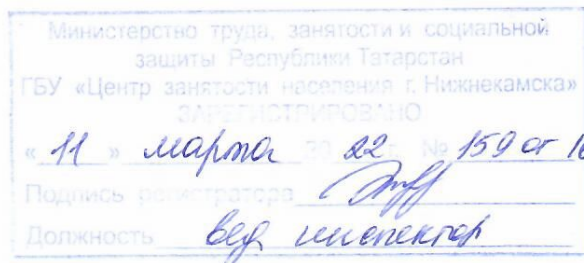 Министерство труда, занятости и социальной
защиты Республики Татарстан
ГБУ «Центр занятости населения г. Нижнекамска»
ЗАРЕГИСТРИРОВАНО
« 11 » марта 20 22 г. № 159 от 10
Подпись регистратора
Должность вед инспектор